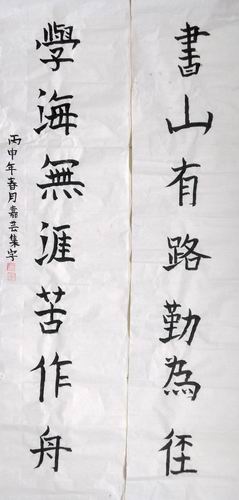 書山有路勤為徑
學海無涯苦作舟
丙申年春月嘉芸集字